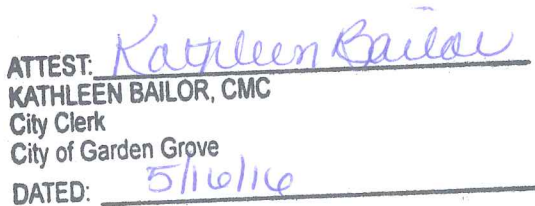 ATTEST: Kathleen Bailor
KATHLEEN BAILOR, CMC
City Clerk
City of Garden Grove
DATED: 5/16/16